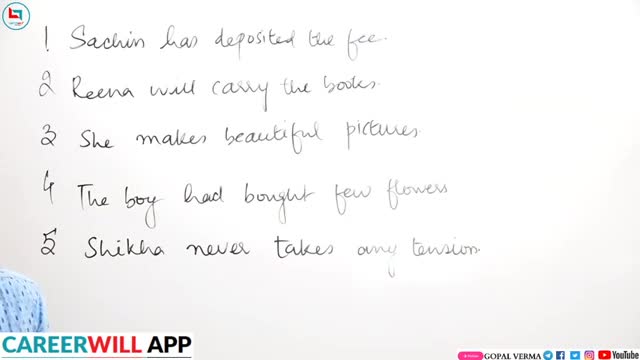 1 Sachin has deposited the fee.
2 Reena will carry the books.
3 She makes beautiful pictures.
4 The boy had bought few flowers
5 Shikha never takes any tension.
CAREERWILL APP
GOPAL VERMA
YouTube